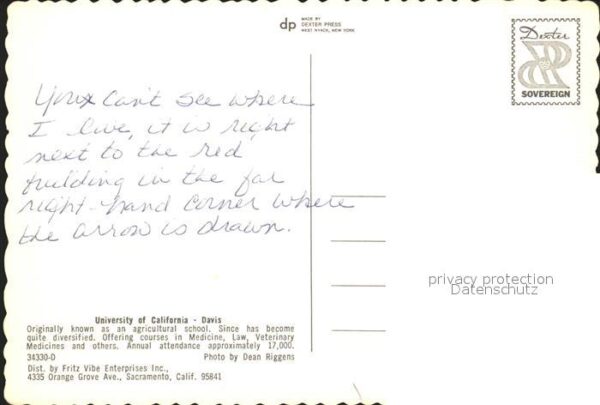 dp MADE BY
DEXTER PRESS
WEST NYACK, NEW YORK
Dexter
SOVEREIGN
You can't see where
I live, it is right
next to the red
building in the far
right-hand corner where
the arrow is drawn.
privacy protection
Datenschutz
University of California - Davis
Originally known as an agricultural school. Since has become
quite diversified. Offering courses in Medicine, Law, Veterinary
Medicines and others. Annual attendance approximately 17,000.
34330-D Photo by Dean Riggens
Dist. by Fritz Vibe Enterprises Inc.,
4335 Orange Grove Ave., Sacramento, Calif. 95841